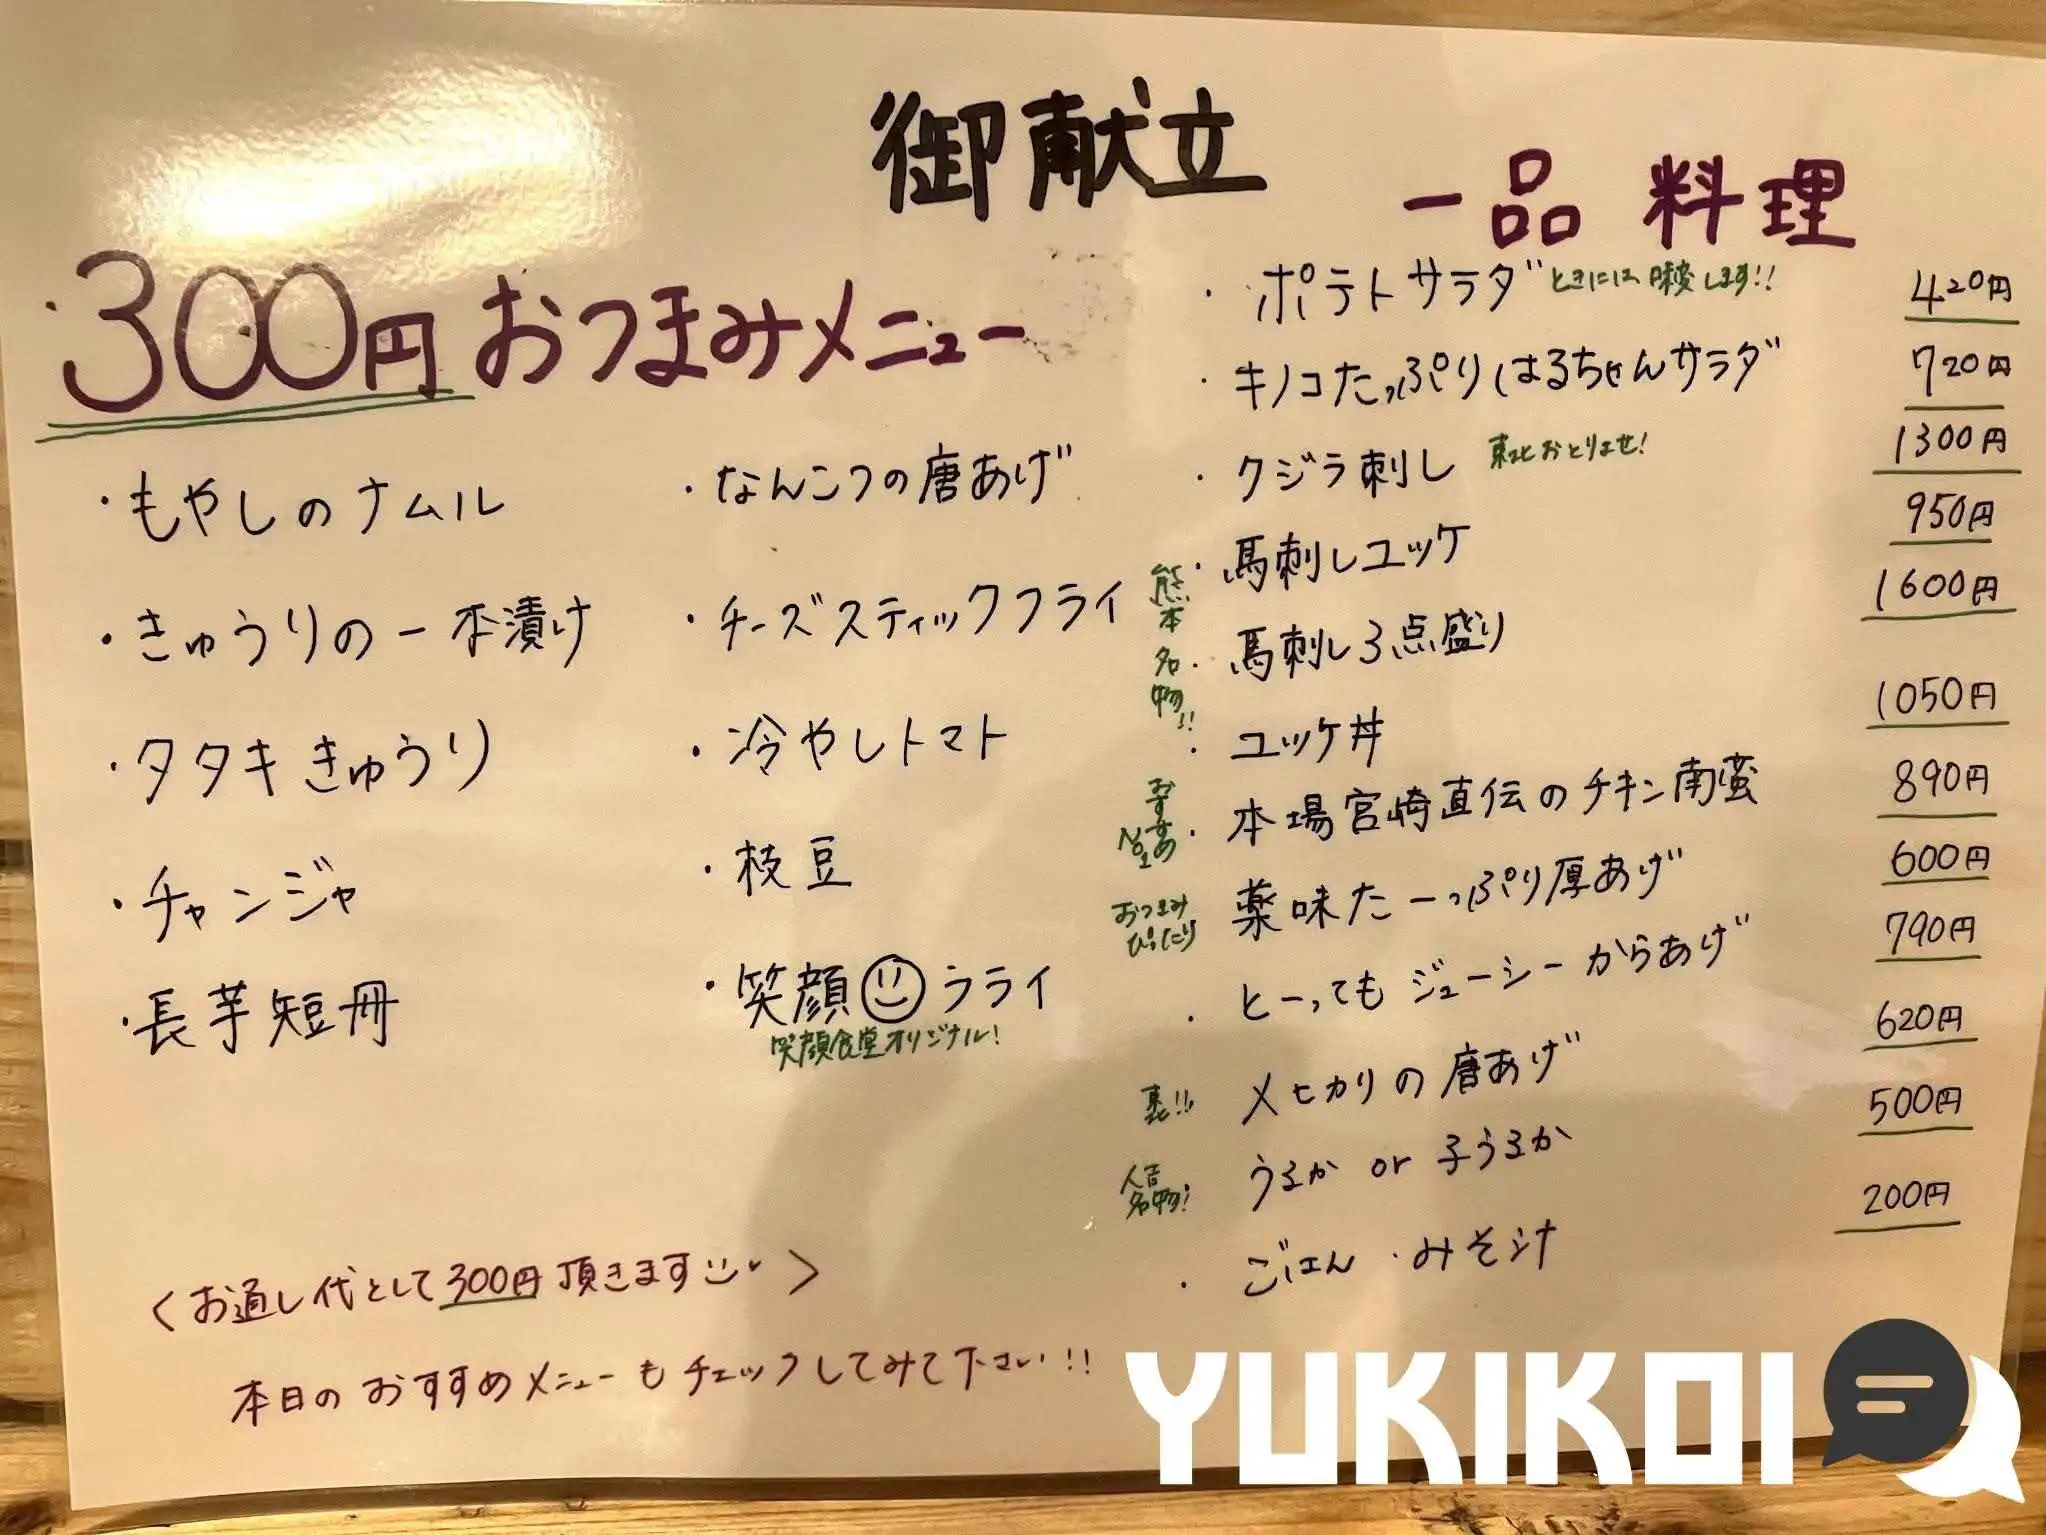 御献立
300円おつまみメニュー
・もやしのナムル
・きゅうりの一本漬け
・タタキきゅうり
・チャンジャ
・長芋短冊
・なんこつの唐あげ
・チーズスティックフライ
・冷やしトマト
・枝豆
・笑顔フライ
笑顔食堂オリジナル!
〈お通し代として300円頂きます〉
本日のおすすめメニューもチェックしてみて下さい!!
一品料理
・ポテトサラダ ときには味変します!! 420円
・キノコたっぷりはるちゃんサラダ 720円
・クジラ刺し おとりよせ! 1300円
熊本名物!!
・馬刺しユッケ 950円
・馬刺し3点盛り 1600円
・ユッケ丼 1050円
おすすめNo1
・本場宮崎直伝のチキン南蛮 890円
おつまみぴったり
薬味たーっぷり厚あげ 600円
・とーってもジューシーからあげ 790円
メヒカリの唐あげ 620円
人吉名物!
うるか or 子うるか 500円
・ごはん・みそ汁 200円
YUKIKOI